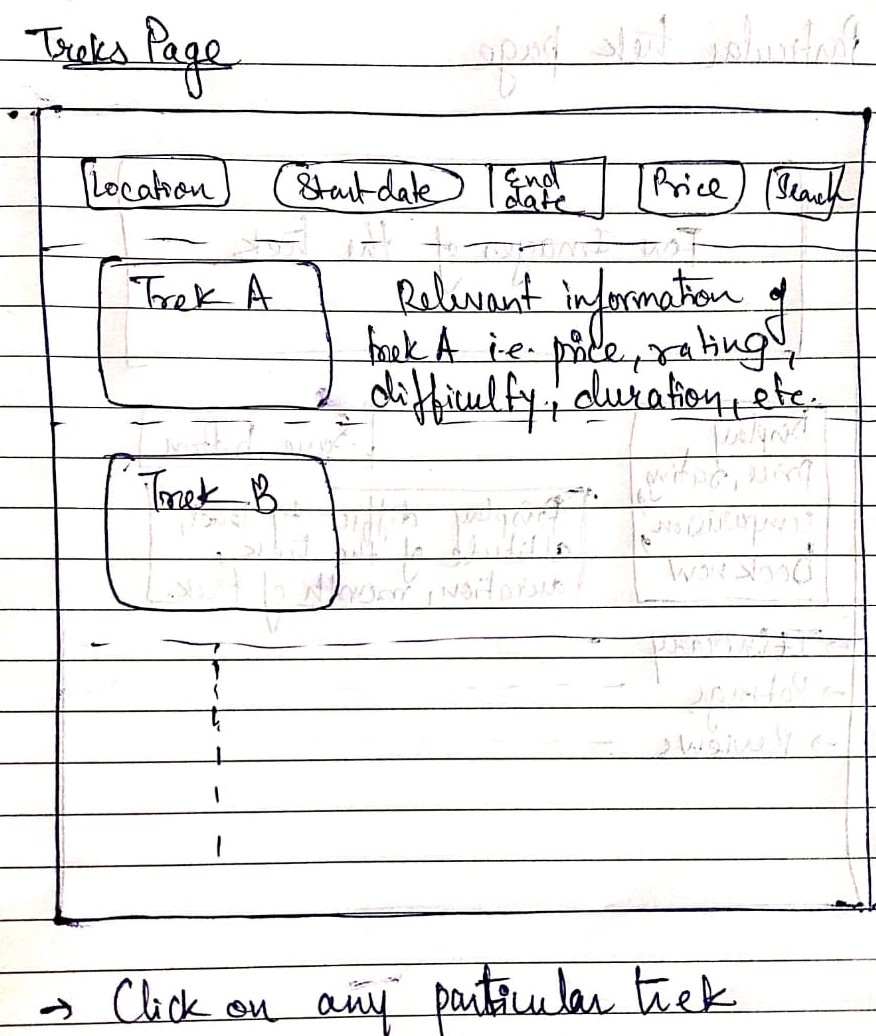 Treks Page
Location Start date End date Price Search
Trek A
Relevant information of
trek A i.e. price, rating,
difficulty, duration, etc.
Trek B
→ Click on any particular trek